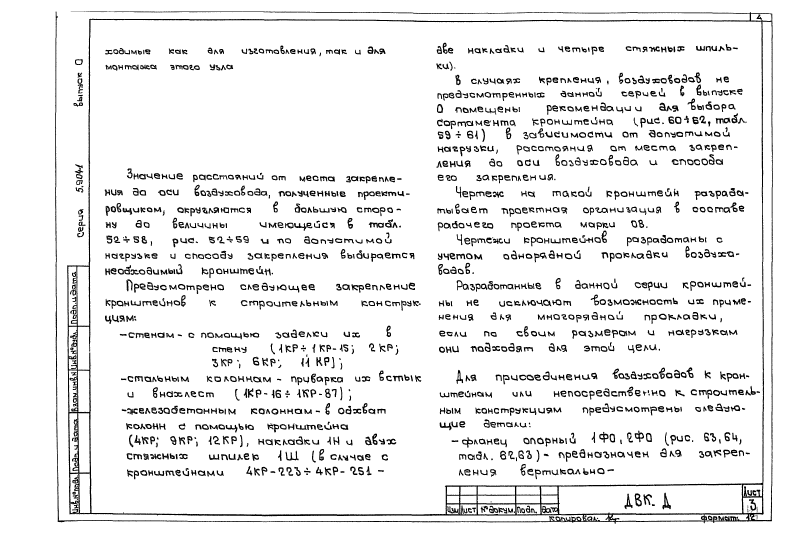 4
ходимые как для изготовления, так и для
монтажа этого узла
Значение расстояний от места закрепле-
ния до оси воздуховода, полученные проекти-
ровщиком, округляются в большую сторо-
ну до величины имеющейся в табл.
52÷58, рис. 52÷59 и по допустимой
нагрузке и способу закрепления выбирается
необходимый кронштейн.
Предусмотрено следующее закрепление
кронштейнов к строительным конструк-
циям:
-стенам- с помощью заделки их в
стену (1КР÷1КР-15; 2КР;
3КР; 6КР; 11КР);
-стальным колоннам- приварка их встык
и внахлест (1КР-16÷1КР-87);
-железобетонным колоннам- в обхват
колонн с помощью кронштейна
(4КР; 9КР; 12КР), накладки 1Н и двух
стяжных шпилек 1Ш (в случае с
кронштейнами 4КР-223÷4КР-251-
две накладки и четыре стяжных шпиль-
ки).
В случаях крепления, воздуховодов не
предусмотренных данной серией в выпуске
0 помещены рекомендации для выбора
сортамента кронштейна (рис.60÷62, табл.
59÷61) в зависимости от допустимой
нагрузки, расстояния от места закреп-
ления до оси воздуховода и способа
его закрепления.
Чертеж на такой кронштейн разраба-
тывает проектная организация в составе
рабочего проекта марки ОВ.
Чертежи кронштейнов разработаны с
учетом однорядной прокладки воздухо-
водов.
Разработанные в данной серии кронштей-
ны не исключают возможность их приме-
нения для многорядной прокладки,
если по своим размерам и нагрузкам
они подходят для этой цели.
Для присоединения воздуховодов к крон-
штейнам или непосредственно к строитель-
ным конструкциям предусмотрены следую-
щие детали:
-фланец опорный 1ФО, 2ФО (рис. 63,64,
табл. 62,63)- предназначен для закреп-
ления вертикально-
Серия 5.904-1 выпуск 0
Инв.№ подл. Подп. и дата Взам.инв.№ Инв.№ дубл. Подп. и дата
Изм Лист № докум. Подп. Дата
ДВК. Д
Лист
3
Копировал. формат: 12